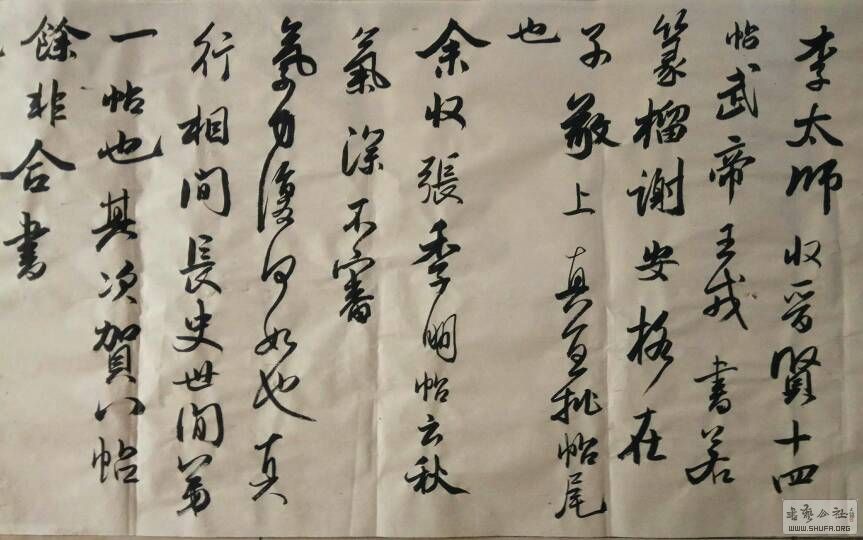 李太師收晉賢十四
帖武帝王戎書若
篆榴謝安格在
子敬上真宜批帖尾
也
余收張季明帖云秋
氣深不審
氣力復何如也真
行相間長史世間第
一帖也其次賀八帖
餘非合書
WWW.SHUFA.ORG